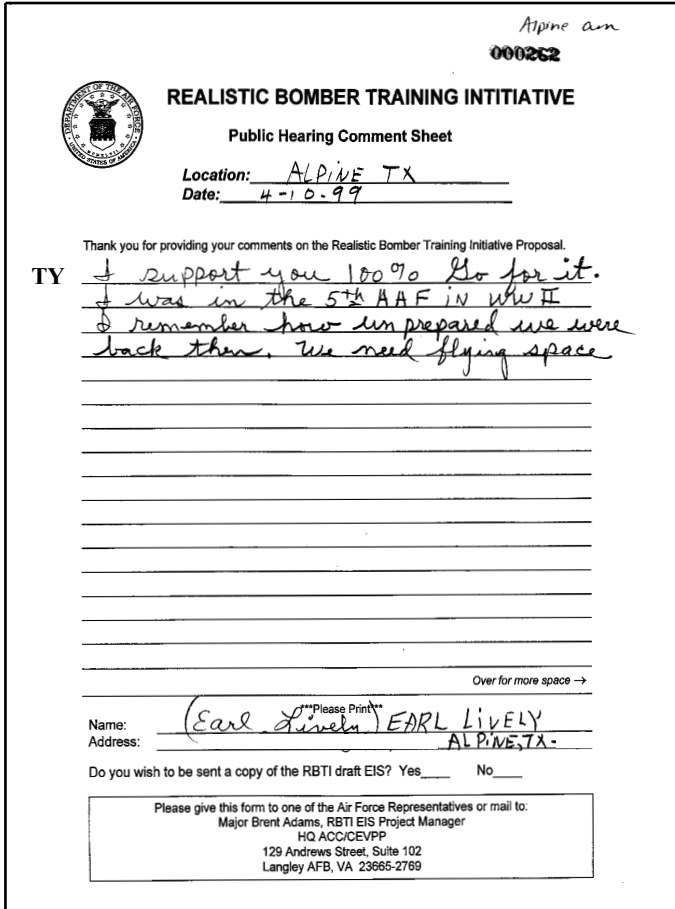 Alpine am
000262
DEPARTMENT OF THE AIR FORCE
MCMXLVII
UNITED STATES OF AMERICA
REALISTIC BOMBER TRAINING INTITIATIVE
Public Hearing Comment Sheet
Location: ALPiNE TX
Date: 4-10-99
Thank you for providing your comments on the Realistic Bomber Training Initiative Proposal.
TY I support you 100% Go for it.
I was in the 5th AAF iN WW II
I remember how unprepared we were
back then. We need flying space
Over for more space →
***Please Print***
Name: (Earl Lively) EARL LiVELY
Address: ALPiNE, TX-
Do you wish to be sent a copy of the RBTI draft EIS? Yes____ No____
Please give this form to one of the Air Force Representatives or mail to:
Major Brent Adams, RBTI EIS Project Manager
HQ ACC/CEVPP
129 Andrews Street, Suite 102
Langley AFB, VA 23665-2769